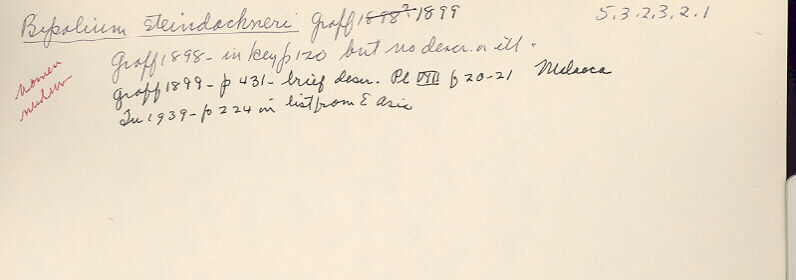 Bipalium steindachneri Graff 1898? 1899 5.3.2.3.2.1
Graff 1898 - in key p 120 but no descr. or ill.
nomen nudum
Graff 1899 - p 431 - brief descr. Pl VIII f 20-21 Malacca
Tu 1939 - p 224 in list from E Asia